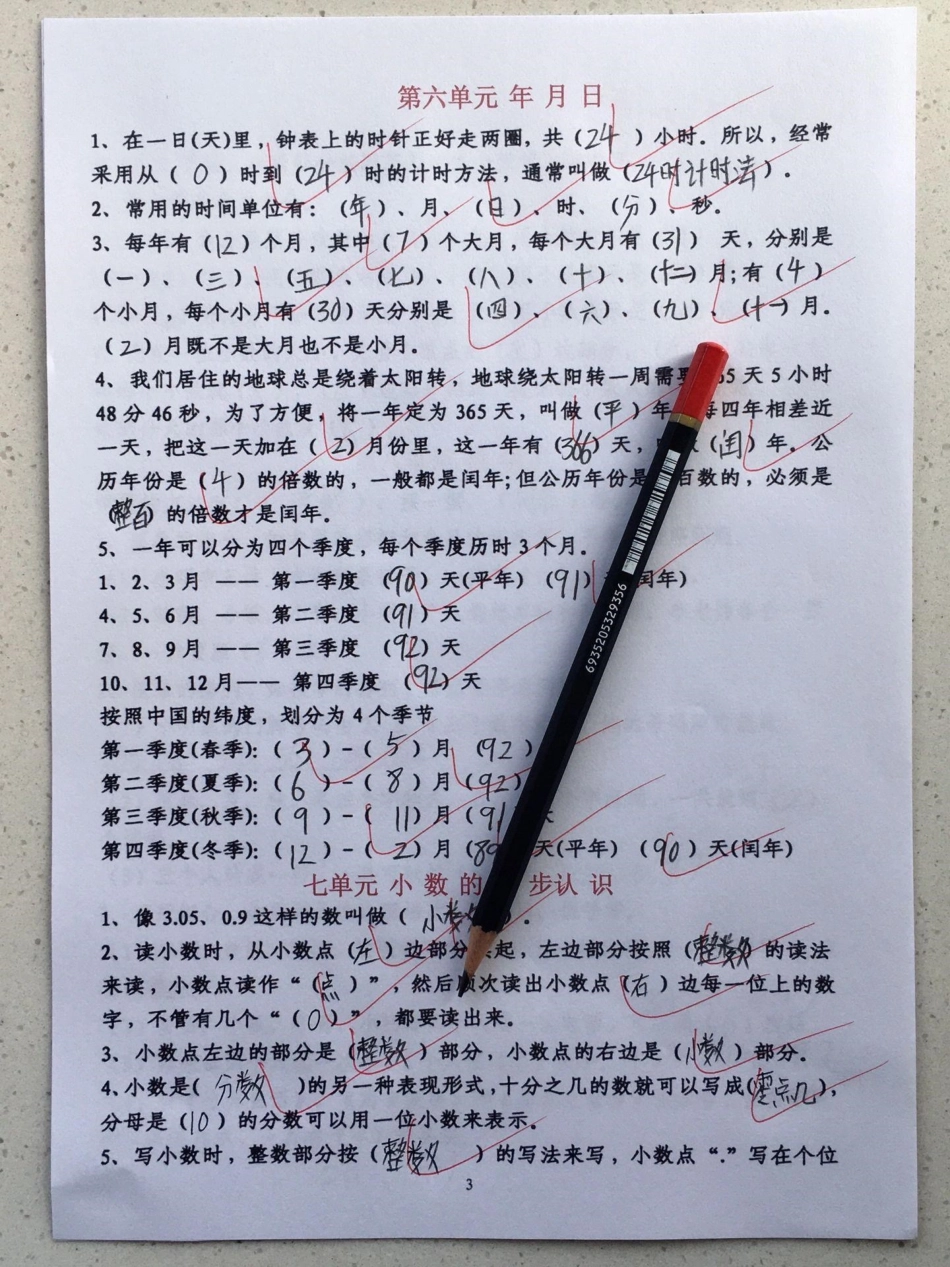 第六单元 年 月 日
1、在一日(天)里，钟表上的时针正好走两圈，共（24）小时。所以，经常
采用从（0）时到（24）时的计时方法，通常叫做（24时计时法）。
2、常用的时间单位有：（年）、月、（日）、时、（分）、秒。
3、每年有（12）个月，其中（7）个大月，每个大月有（31） 天，分别是
（一）、（三）、（五）、（七）、（八）、（十）、（十二）月;有（4）
个小月，每个小月有（30）天分别是 （四）、（六）、（九）、（十一）月。
（2）月既不是大月也不是小月。
4、我们居住的地球总是绕着太阳转，地球绕太阳转一周需 65 天 5 小时
48 分 46 秒，为了方便，将一年定为 365 天，叫做（平）年 每四年相差近
一天，把这一天加在（2）月份里，这一年有（366）天， （闰）年。公
历年份是（4）的倍数的，一般都是闰年;但公历年份是 百数的，必须是
（整百）的倍数才是闰年。
5、一年可以分为四个季度，每个季度历时 3 个月。
1、2、3 月 —— 第一季度 （90）天(平年) （91） 闰年）
4、5、6 月 —— 第二季度 （91）天
7、8、9 月 —— 第三季度 （92）天
10、11、12 月—— 第四季度 （92）天
按照中国的纬度，划分为 4 个季节
第一季度(春季):（3）-（5）月（92）
第二季度(夏季):（6）-（8）月（92）
第三季度(秋季):（9）-（11）月（91 天
第四季度(冬季):（12）-（2）月（89 天(平年) （90）天(闰年)
七单元 小 数 的 步认 识
1、像 3.05、0.9 这样的数叫做（小数）。
2、读小数时，从小数点（左）边部分 起，左边部分按照（整数）的读法
来读，小数点读作“（点）”，然后顺次读出小数点（右）边每一位上的数
字，不管有几个“（0）”，都要读出来。
3、小数点左边的部分是（整数）部分，小数点的右边是（小数）部分。
4、小数是（分数）的另一种表现形式，十分之几的数就可以写成（零点几），
分母是（10）的分数可以用一位小数来表示。
5、写小数时，整数部分按（整数）的写法来写，小数点“.”写在个位
3
6935205329356